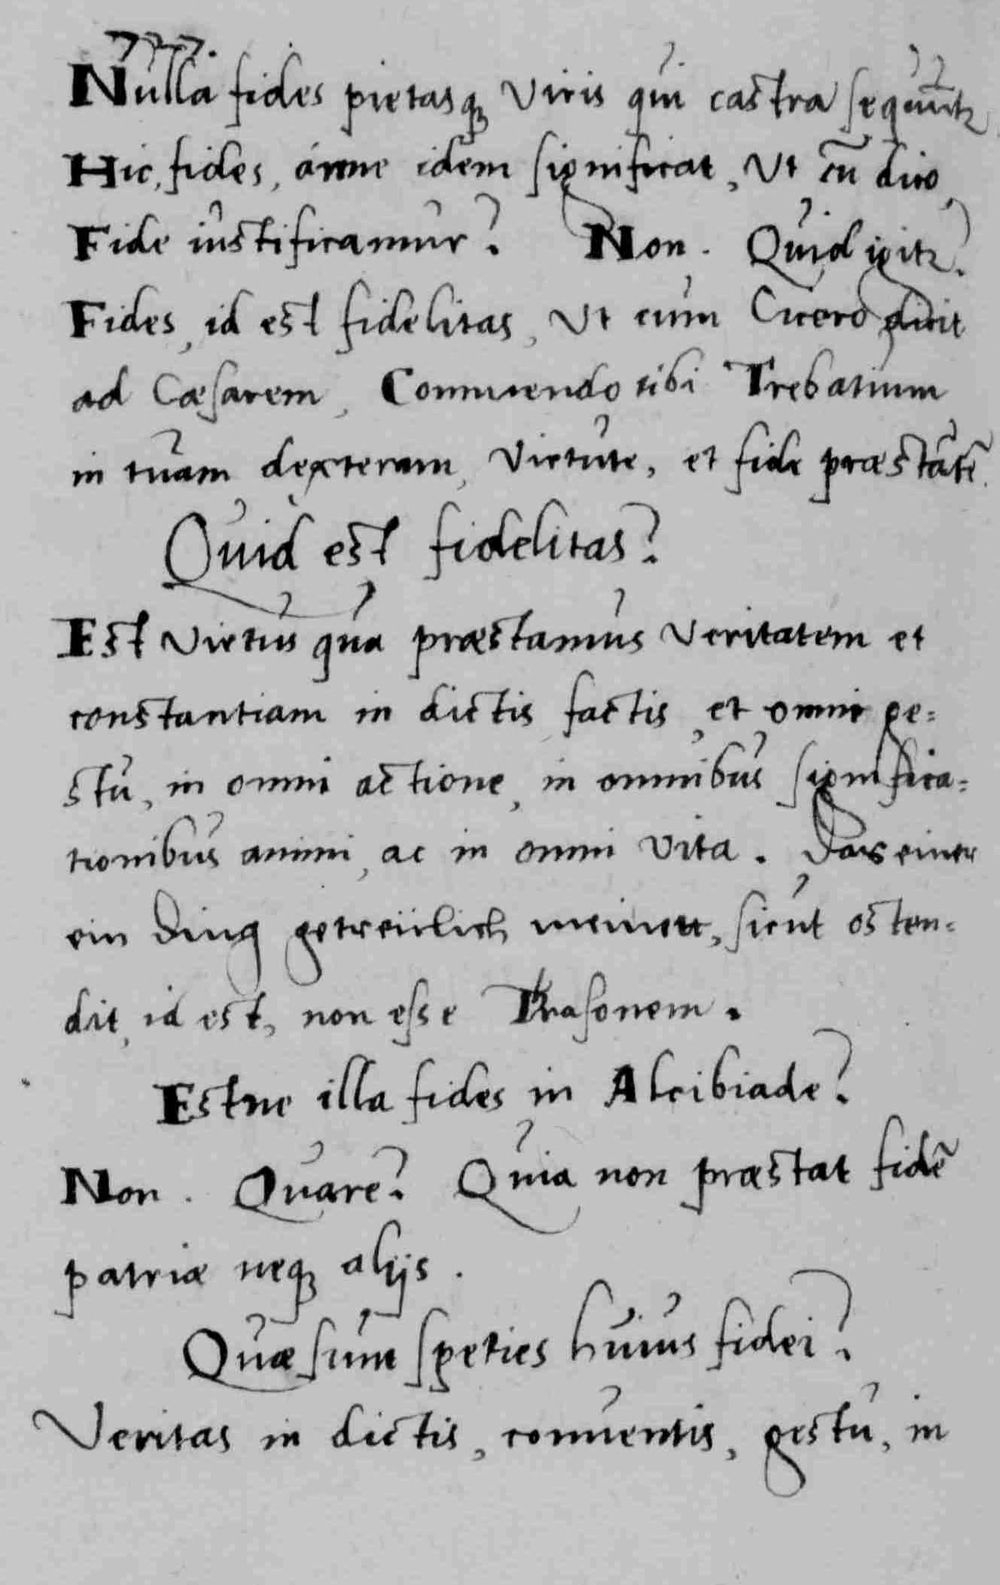 Nulla fides pietasq; viris qui castra sequunt
Hic, fides, anne idem significat, Ut cū dico,
Fide iustificamur? Non. Quid igit?
Fides, id est fidelitas, Ut cum Cicero dicit
ad Cæsarem, Commendo tibi Trebatium
in tuam dexteram, virtute, et fide præstātē.
Quid est fidelitas?
Est virtus qua præstamus veritatem et
constantiam in dictis factis, et omni ge=
stu, in omni actione, in omnibus significa=
tionibus animi, ac in omni vita. Das einer
ein Ding getreülich meinett, sicut osten=
dit, id est, non esse Thrasonem.
Estne illa fides in Alcibiade?
Non. Quare? Quia non præstat fidē
patriæ neq; alijs.
Quæ sunt speties huius fidei?
Veritas in dictis, conuentis, gestu, in